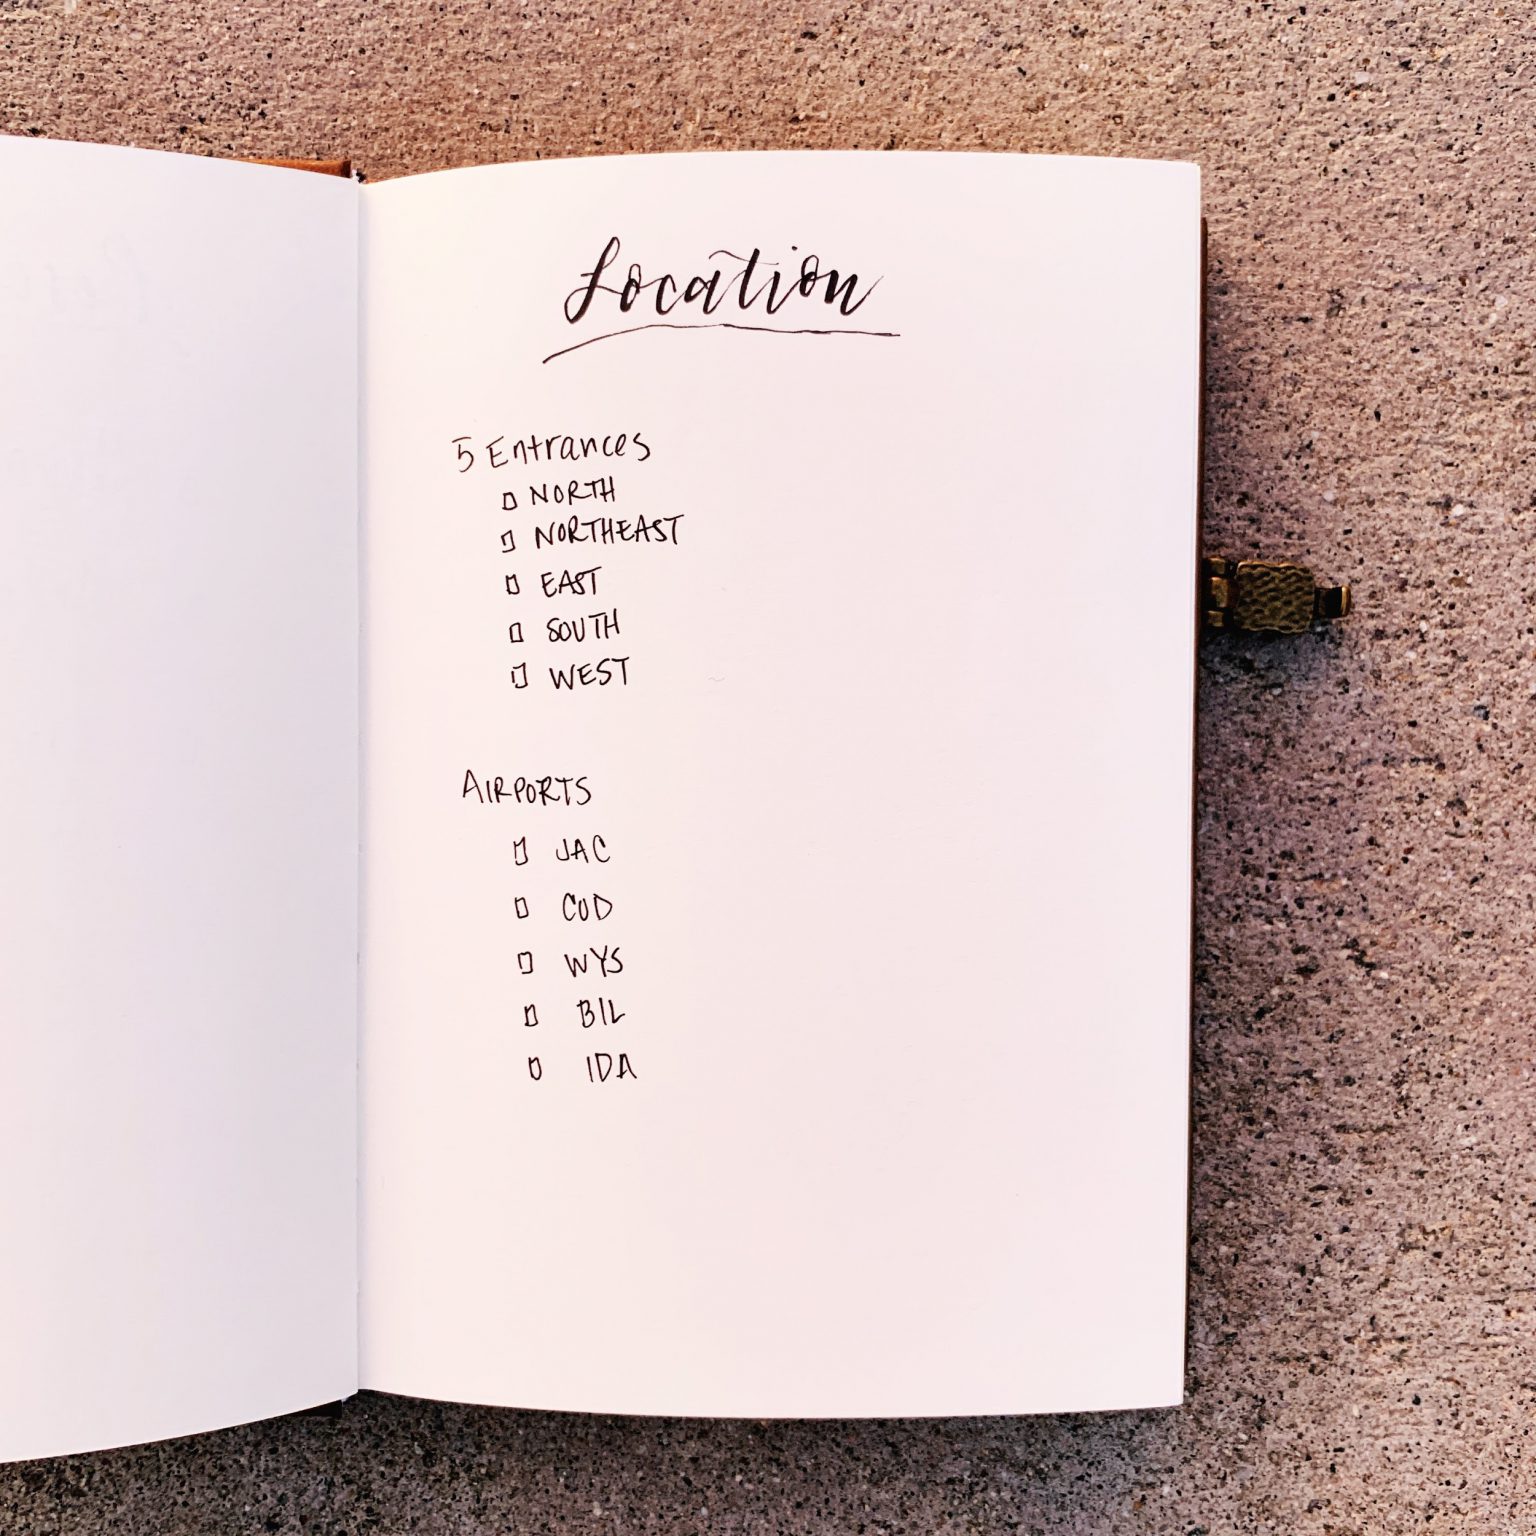 Location
5 Entrances
NORTH
NORTHEAST
EAST
SOUTH
WEST
AIRPORTS
JAC
COD
WYS
BIL
IDA